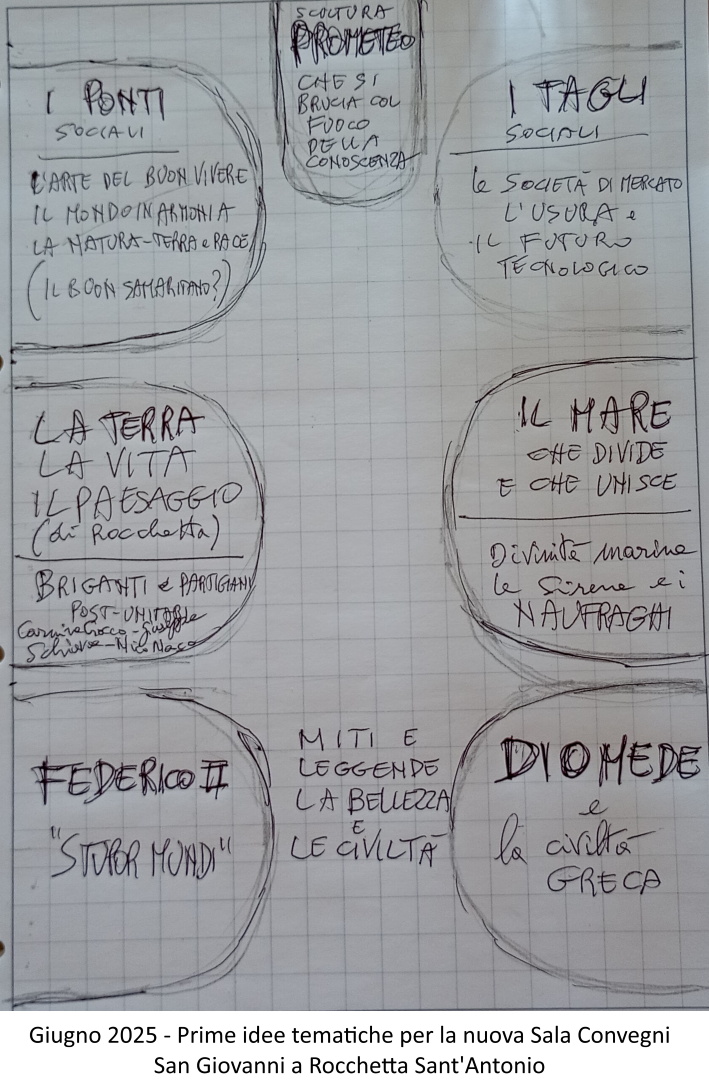 SCULTURA
PROMETEO
CHE SI
BRUCIA COL
FUOCO
DELLA
CONOSCENZA
I PONTI
SOCIALI
L'ARTE DEL BUON VIVERE
IL MONDO IN ARMONIA
LA NATURA-TERRA e PACE
(IL BUON SAMARITANO?)
I TAGLI
SOCIALI
le SOCIETÀ DI MERCATO
L'USURA e
IL FUTURO
TECNOLOGICO
LA TERRA
LA VITA
IL PAESAGGIO
(di Rocchetta)
BRIGANTI e PARTIGIANI
POST-UNITARI
Carmine Crocco - Giuseppe
Schiavone - Nico Nanco
IL MARE
CHE DIVIDE
E CHE UNISCE
Divinità marine
le Sirene e i
NAUFRAGHI
FEDERICO II
"STUPOR MUNDI"
MITI E
LEGGENDE
LA BELLEZZA
E
LE CIVILTÀ
DIOMEDE
e
la civiltà
GRECA
Giugno 2025 - Prime idee tematiche per la nuova Sala Convegni
San Giovanni a Rocchetta Sant'Antonio